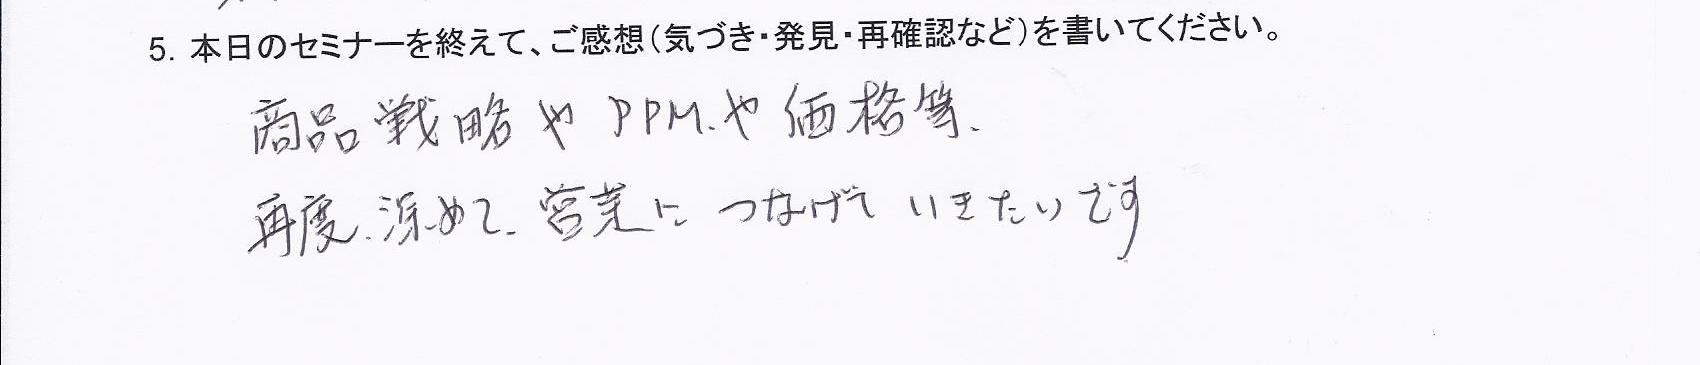 5. 本日のセミナーを終えて、ご感想（気づき・発見・再確認など）を書いてください。
商品戦略や PPM.や 価格等.
再度.深めて.営業に つなげて いきたいです